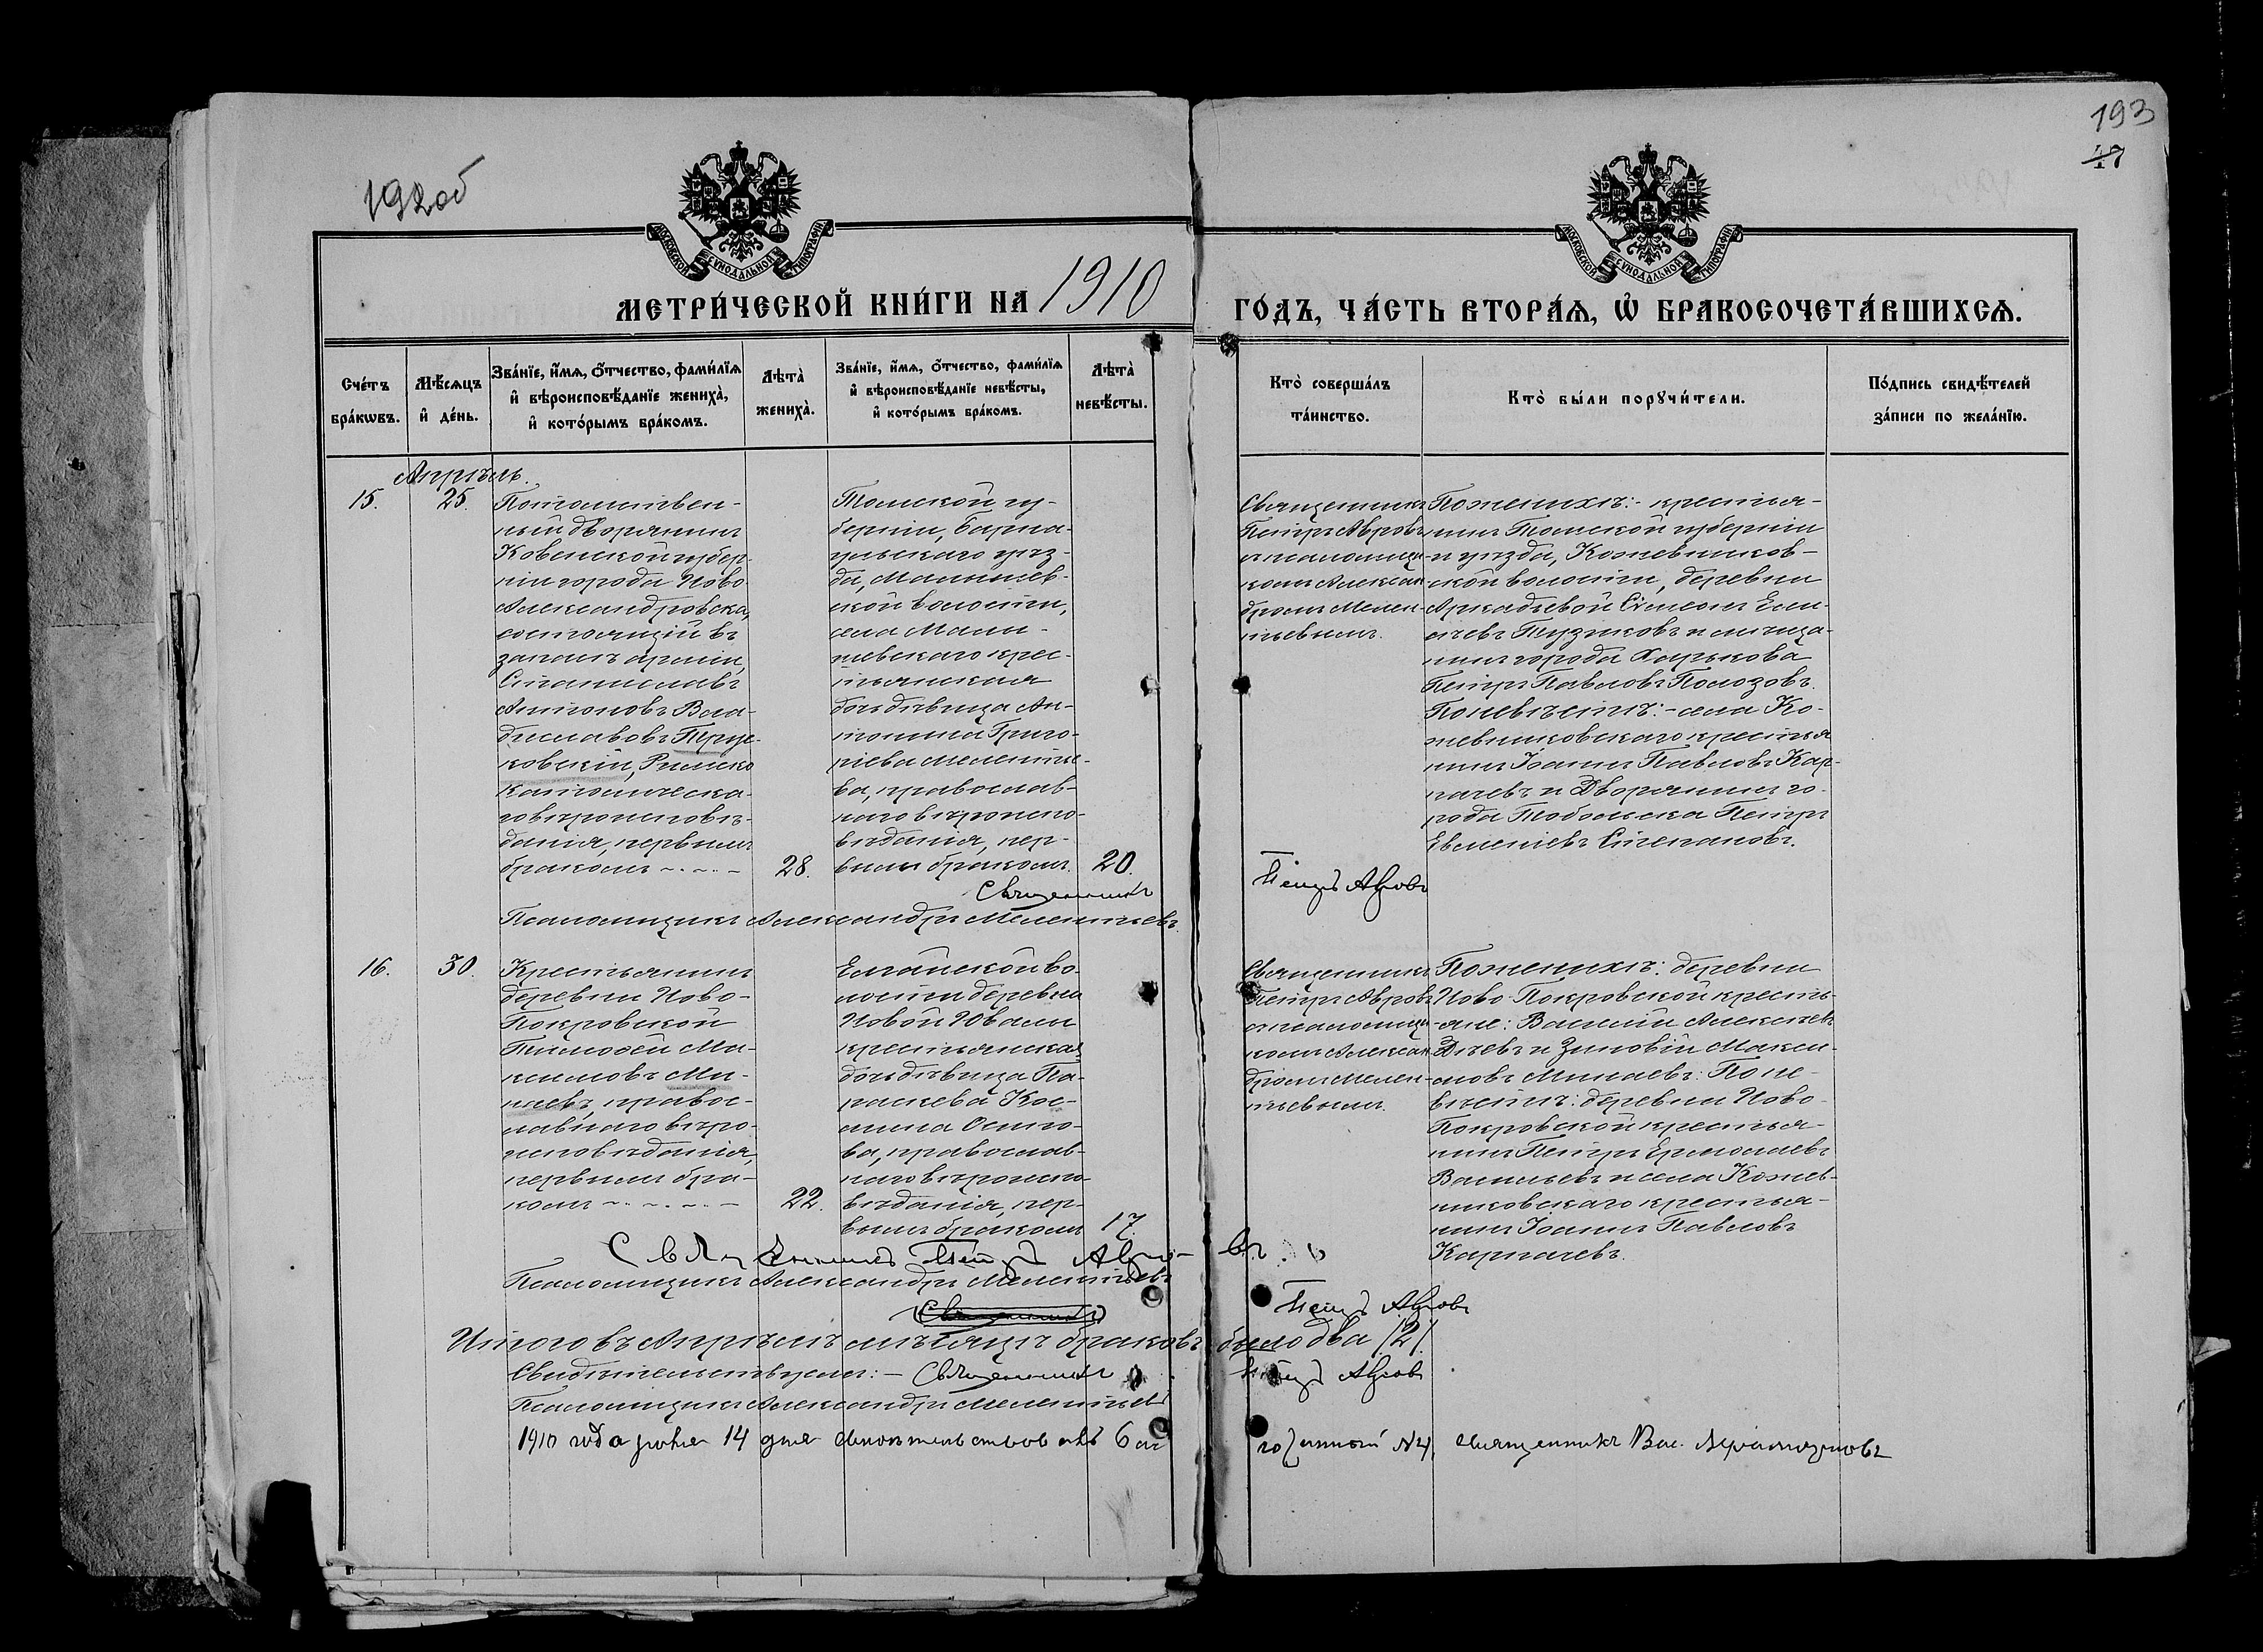 192об
193
47
МОСКОВСКОЙ СѴНОДАЛЬНОЙ ТИПОГРАФІИ
МОСКОВСКОЙ СѴНОДАЛЬНОЙ ТИПОГРАФІИ
МЕТРИ́ЧЕСКОЙ КНИ́ГИ НА 1910
ГО́ДЪ, ЧА́СТЬ ВТОРА́Ѧ, Ѽ БРАКОСОЧЕТА́ВШИХСѦ.
Сче́тъ
бра́кѡвъ.
Мѣ́сѧцъ
и҆ де́нь.
Зва́нїе, и҆́мѧ, ѻ҆́тчество, фами́лїѧ
и҆ вѣроисповѣ́данїе жениха̀,
и҆ кото́рымъ бра́комъ.
Лѣта̀
жениха̀.
Зва́нїе, и҆́мѧ, ѻ҆́тчество, фами́лїѧ
и҆ вѣроисповѣ́данїе невѣ́сты,
и҆ кото́рымъ бра́комъ.
Лѣта̀
невѣ́сты.
Кто̀ соверша́лъ
та́инство.
Кто̀ бы́ли порꙋчи́тели.
По́дпись свидѣ́телей
за́писи по жела́нїю.
Апрѣль.
15.
25.
Потомствен-
ный дворянинъ
Ковенской губер-
ніи города Ново
Александровска,
состоящій въ
запасѣ арміи,
Станиславъ
Антоновъ Вла-
диславовъ Прус-
ковскій, Римско
католическа-
го вѣроисповѣ-
данія, первымъ
бракомъ
28.
Томской гу-
берніи, Барна-
ульскаго уѣз-
да, Малышев-
ской волости,
села Малы-
шевскаго крес-
тьянская
дочь дѣвица Ан-
тонина Григо-
ріева Мелентье-
ва, православ-
наго вѣроиспо-
вѣданія, пер-
вымъ бракомъ.
20.
Священникъ
Петръ Авровъ
съ псаломщи-
комъ Алексан-
дромъ Мелен-
тьевымъ.
По женихѣ:- крестья-
нинъ Томской губерніи
и уѣзда, Кожевников-
ской волости, деревни
Аркадьевой Сімеонъ Ели-
сѣевъ Пузиковъ и мѣща-
нинъ города Харькова
Петръ Павловъ Полозовъ.
По невѣстѣ:- села Ко-
жевниковскаго крестья
нинъ Іоаннъ Павловъ Кар-
пачевъ и Дворянинъ го-
рода Тобольска Петръ
Евменіевъ Степановъ.
Священникъ
Петръ Авровъ
Псаломщикъ Александръ Мелентьевъ.
16.
30.
Крестьянинъ
деревни Ново-
Покровской
Тимофей Ма-
ксимовъ Ми-
наевъ, правос-
лавнаго вѣро-
исповѣданія,
первымъ бра-
комъ
22.
Елгайской во-
лости деревни
Новой Ювалы
крестьянская
дочь дѣвица Па-
раскева Кос-
мина Осипо-
ва, православ-
наго вѣроиспо-
вѣданія, пер-
вымъ бракомъ
17.
Священникъ
Петръ Авровъ
съ псаломщи-
комъ Алексан-
дромъ Мелен-
тьевымъ.
По женихѣ: деревни
Ново-Покровской кресть-
яне: Василій Алексѣевъ
и Зиновій Макси-
мовъ Минаевъ: По не-
вѣстѣ: деревни Ново-
Покровской крестья-
нинъ Петръ Ермолаевъ
Васильевъ и села Кожев-
никовскаго крестья-
нинъ Іоаннъ Павловъ
Карпачевъ.
Священникъ Петръ Авро-въ.
Псаломщикъ Александръ Мелентьевъ
Священникъ
Петръ Авровъ
Итого въ Апрѣлѣ мѣсяцѣ браковъ было два /2/.
Свидѣтельствуемъ:- Священникъ Петръ Авровъ
Псаломщикъ Александръ Мелентьевъ
1910 года 14 дня свидѣтельствовалъ Благочинный №4, священникъ Вас.